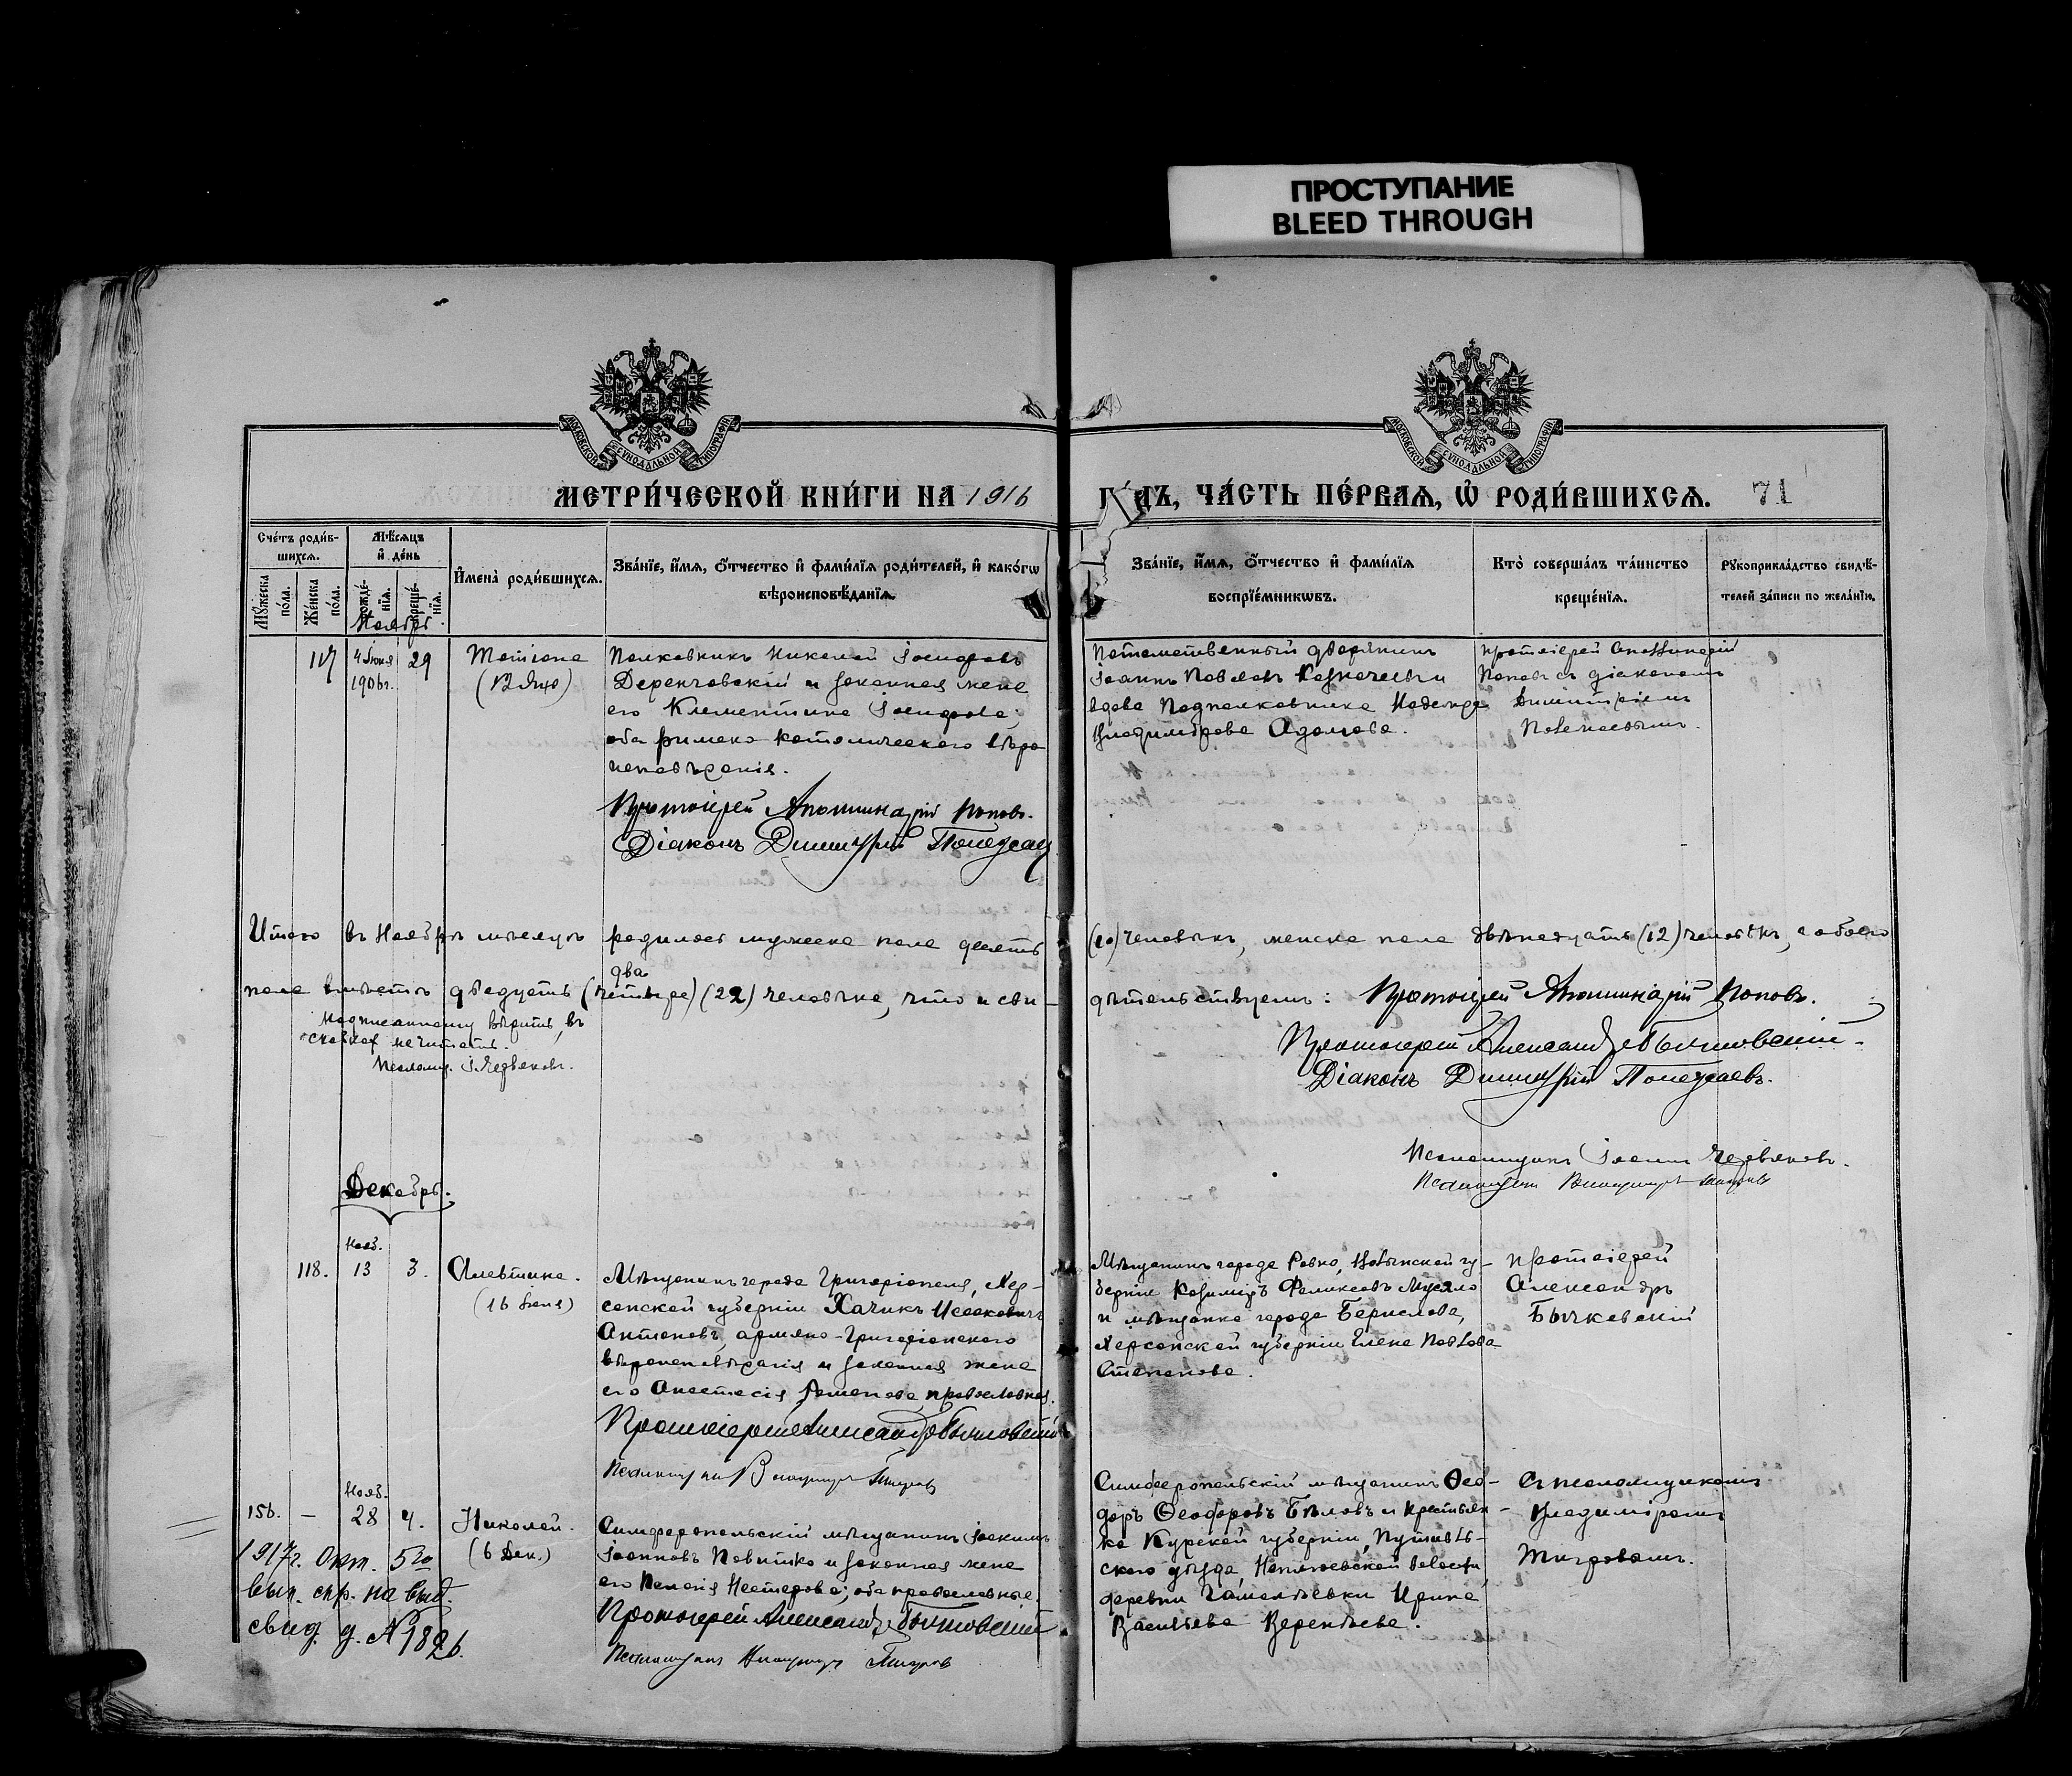 ПРОСТУПАНИЕ
BLEED THROUGH
МОСКОВСКОЙ СУНОДАЛЬНОЙ ТИПОГРАФІИ
МОСКОВСКОЙ СУНОДАЛЬНОЙ ТИПОГРАФІИ
МЕТРИ́ЧЕСКОЙ КНИ́ГИ НА 1916
ГО́ДЪ, ЧА́СТЬ ПЕ́РВАЯ, Ѡ РОДИ́ВШИХСЯ. 71
Сче́тъ роди́в-
шихся.
Мꙋ́жеска по́ла.
Же́нска по́ла.
Мѣ́сяцъ
и де́нь
рожде́-
нїя.
креще́-
нїя.
Ноябрь.
И҆мена̀ роди́вшихся.
Зва́нїе, и҆́мя, ѻ҆́тчество и҆ фами́лїя роди́телей, и҆ како́гѡ
вѣроисповѣ́данїя.
Зва́нїе, и҆́мя, ѻ҆́тчество и҆ фами́лїя
воспрїе́мникѡвъ.
Кто̀ соверша́лъ та́инство
креще́нїя.
Рꙋкоприкла́дство свидѣ́-
телей за́писи по жела́нїю.
117
4 Іюня
1906 г.
29
Татіана
Полковникъ Николай Іосифовъ
Деренговскій и законная жена
его Клементина Іосифова;
оба римско католическаго вѣро
исповѣданія.
Протоіерей Аполлинарій Поповъ.
Діаконъ Димитрій
Потомственный дворянинъ
Іоаннъ Павловъ Казначеевъ и
вдова Подполковника Надежда
Владимірова Адамова.
Протоіерей Аполлинарій
Поповъ съ діакономъ
Димитріемъ
Итого въ Ноябрѣ мѣсяцѣ родилось мужеска пола десять
(10) человѣкъ, женска пола двѣнадцать (12) человѣкъ, а обоего
два
пола вмѣстѣ двадцать (четыре) (22) человѣка, что и сви-
дѣтельствуемъ: Протоіерей Аполлинарій Поповъ.
Надписанному вѣрить, въ
скобках не читать.
Псаломщ. І. Червяковъ.
Протоіерей Александръ Бычковскій.
Діаконъ Димитрій
Псаломщикъ Іоаннъ Червяковъ.
Псаломщикъ Владиміръ Тигровъ
Декабрь.
118.
Нояб.
13
3.
Алевтина.
(16 Іюля)
Мѣщанинъ города Григоріополя, Хер-
сонской губерніи Хачикъ Исааковичъ
Антоновъ, армяно-григоріанскаго
вѣроисповѣданія и законная жена
его Анастасія Романова, православная.
Протоіерей Александръ Бычковскій
Псаломщикъ Владиміръ Тигровъ
Мѣщанинъ города Ровно, Волынской гу-
берніи Казиміръ Феликсовъ
и мѣщанка города Берислава,
Херсонской губерніи Елена Павлова
Степанова.
Протоіерей
Александръ
Бычковскій
156.
–
Нояб.
28
4.
Николай.
(6 Дек.)
Симферопольскій мѣщанинъ Іоакимъ
Іоанновъ Повитко и законная жена
его Пелагія Нестерова; оба православные.
Протоіерей Александръ Бычковскій
Псаломщикъ Владиміръ Тигровъ
1917 г. Окт. 5го
вып. спр. на выд.
свид. д. № 1826.
Симферопольскій мѣщанинъ Ѳео-
доръ Ѳеодоровъ Бѣловъ и крестьян-
ка Курской губерніи, Путивль-
скаго уѣзда, волости
деревни Ирина
Васильева Верентьева.
Съ псаломщикомъ
Владиміромъ
Тигровымъ.